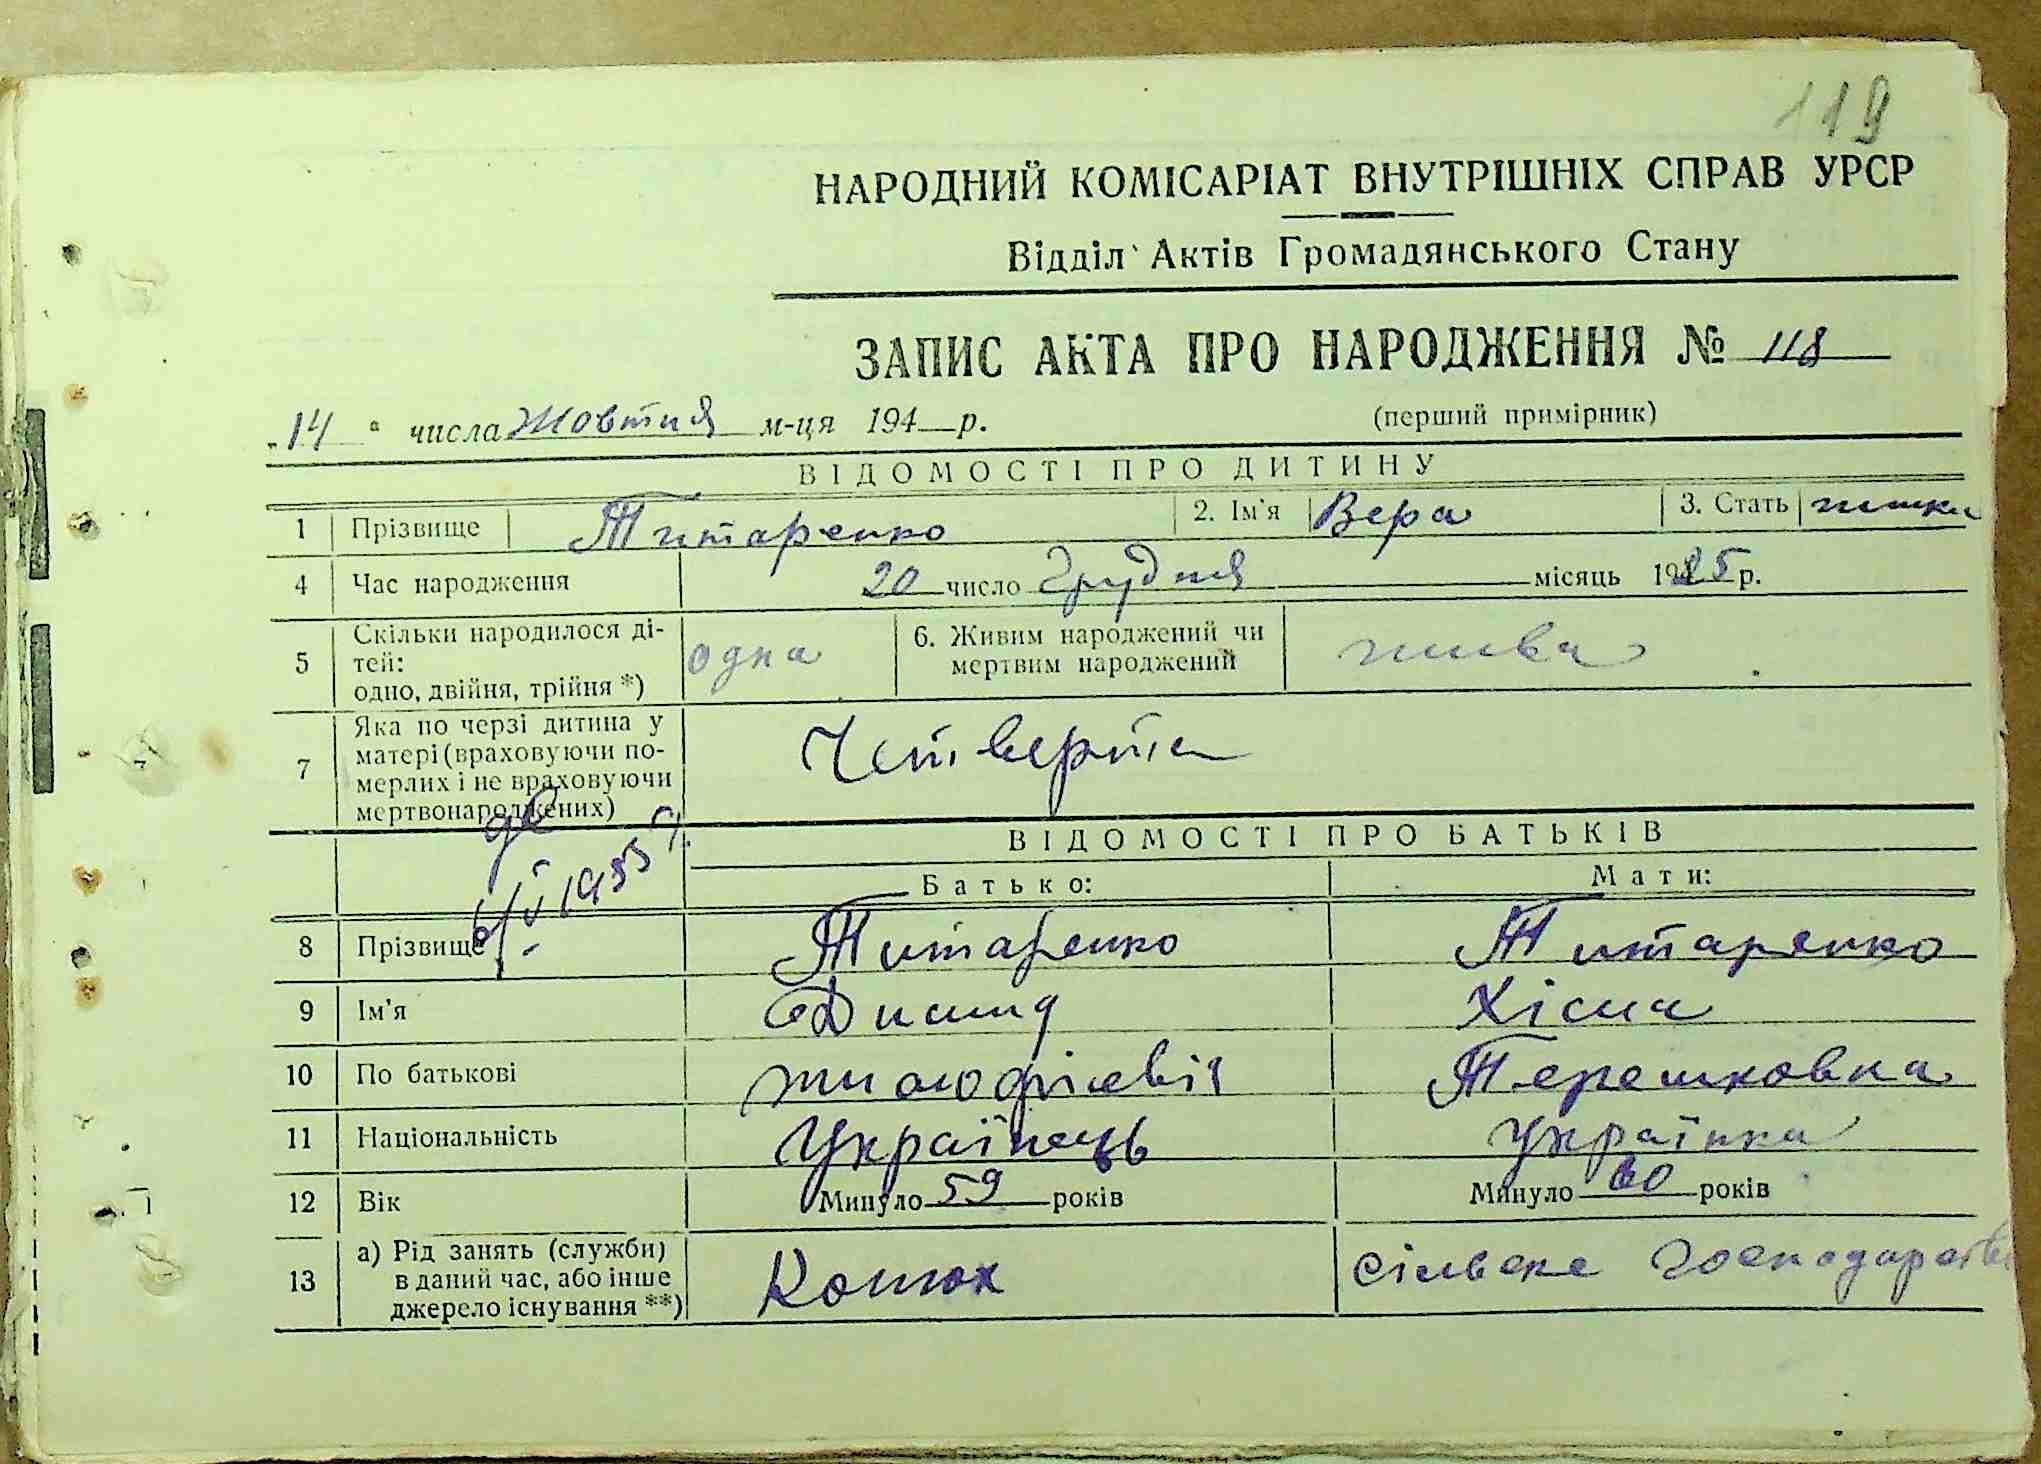 119
НАРОДНИЙ КОМІСАРІАТ ВНУТРІШНІХ СПРАВ УРСР
Відділ Актів Громадянського Стану
ЗАПИС АКТА ПРО НАРОДЖЕННЯ № 118
„14" числа Жовтня м-ця 194 р. (перший примірник)
ВІДОМОСТІ ПРО ДИТИНУ
1 Прізвище Титаренко 2. Ім'я Вера 3. Стать
4 Час народження 20 число Грудня місяць 1925 р.
5 Скільки народилося ді-
тей:
одно, двійня, трійня *) одна 6. Живим народжений чи
мертвим народжений жива
7 Яка по черзі дитина у
матері (враховуючи по-
мерлих і не враховуючи
мертвонароджених) Четверта
ВІДОМОСТІ ПРО БАТЬКІВ
Батько: Мати:
8 Прізвище Титаренко Титаренко
9 Ім'я Хісна
10 По батькові Терешковна
11 Національність Українець Українка
12 Вік Минуло 59 років Минуло 60 років
13 а) Рід занять (служби)
в даний час, або інше
джерело існування **) Конюх сільске господарство